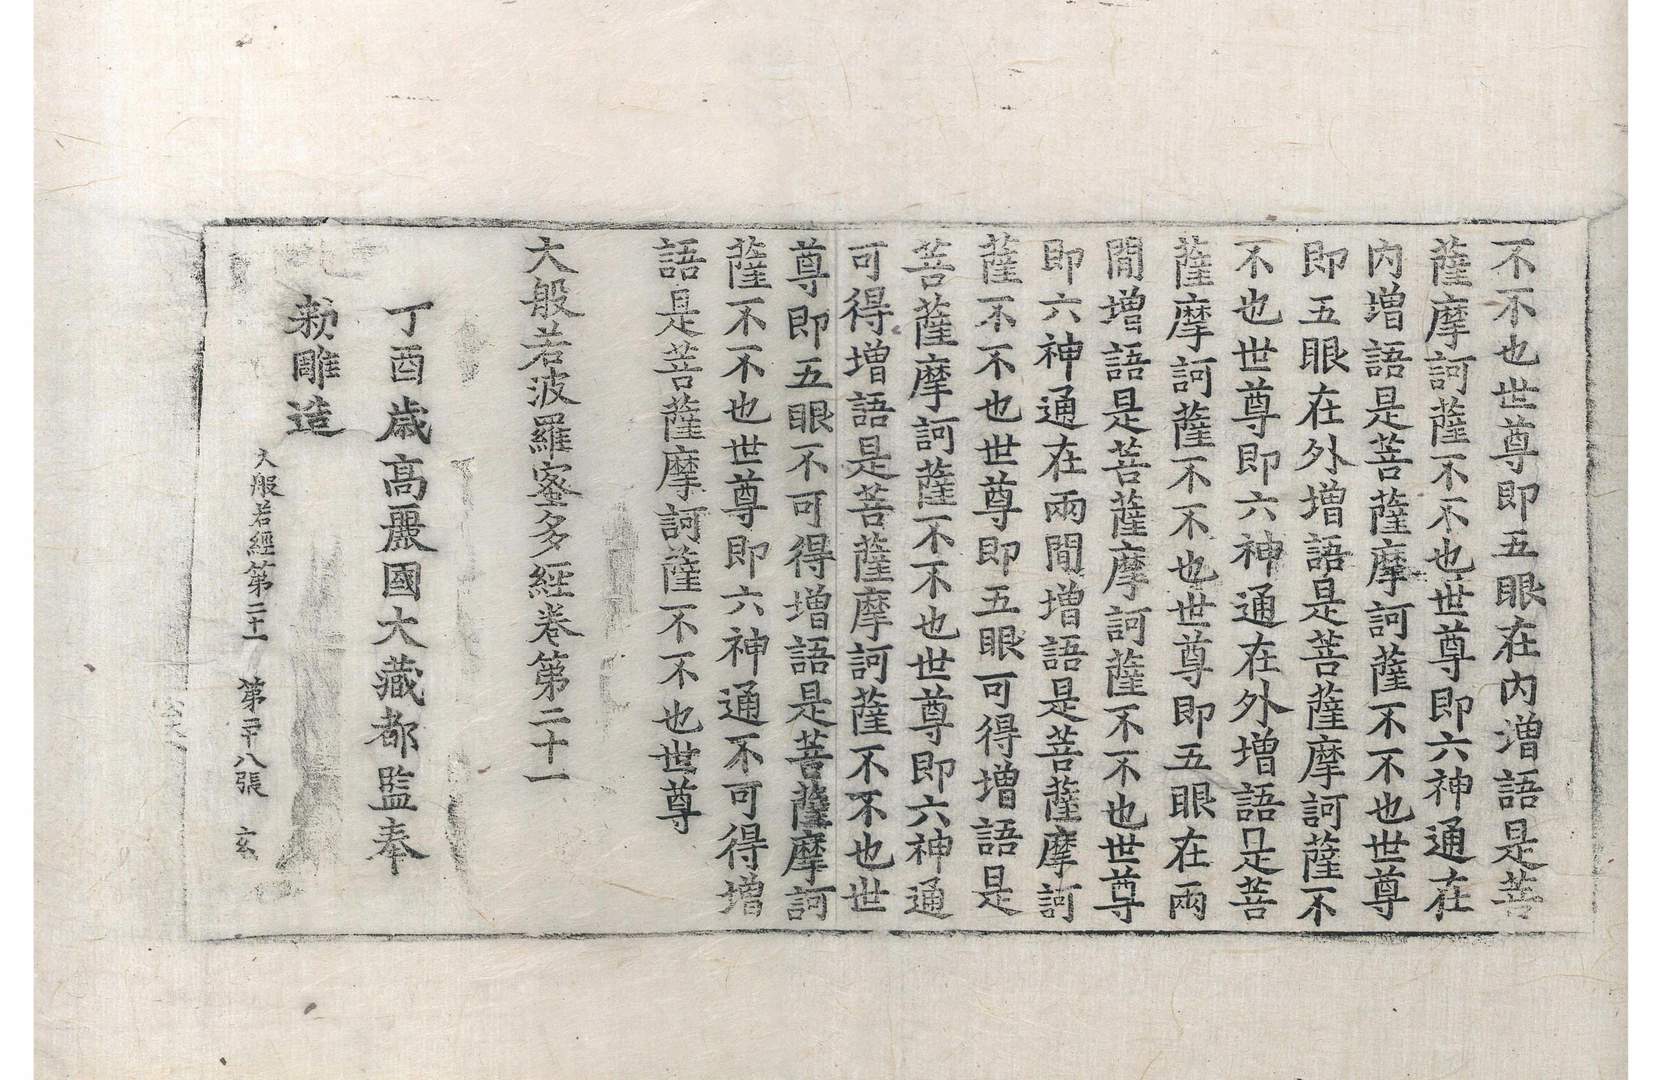 不不也世尊即五眼在內增語是菩
薩摩訶薩不不也世尊即六神通在
內增語是菩薩摩訶薩不不也世尊
即五眼在外增語是菩薩摩訶薩不
不也世尊即六神通在外增語是菩
薩摩訶薩不不也世尊即五眼在兩
閒增語是菩薩摩訶薩不不也世尊
即六神通在兩閒增語是菩薩摩訶
薩不不也世尊即五眼可得增語是
菩薩摩訶薩不不也世尊即六神通
可得增語是菩薩摩訶薩不不也世
尊即五眼不可得增語是菩薩摩訶
薩不不也世尊即六神通不可得增
語是菩薩摩訶薩不不也世尊
大般若波羅蜜多經卷第二十一
丁酉歲高麗國大藏都監奉
勅雕造
大般若經第二十一 第二十八張 玄